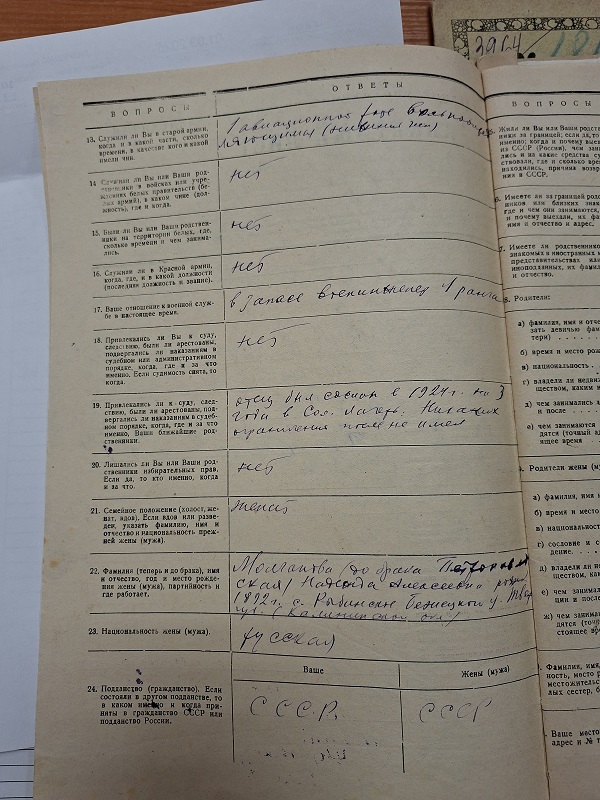 3964
ВОПРОСЫ
ОТВЕТЫ
13. Служили ли Вы в старой армии,
когда и в какой части, сколько
времени, в качестве кого и какой
имели чин.
14 Служили ли Вы или Ваши род-
ственники в войсках или учре-
ждениях белых правительств (бе-
лых армий), в каком чине (дол-
жность), где и когда.
нет
15. Были ли Вы или Ваши родствен-
ники на территории белых, где,
сколько времени и чем занима-
лись.
нет
16. Служили ли в Красной армии,
когда, где, и в какой должности
(последняя должность и звание).
нет
17. Ваше отношение к военной служ-
бе в настоящее время.
в запасе военинженер 1 ранга
18. Привлекались ли Вы к суду,
следствию, были ли арестованы,
подвергались ли наказаниям в
судебном или административном
порядке, когда, где и за что
именно. Если судимость снята, то
когда.
нет
19. Привлекались ли к суду, след-
ствию, были ли арестованы, под-
вергались ли наказанию в судеб-
ном порядке, когда, где и за что
именно, Ваши ближайшие род-
ственники.
отец был сослан в 1924 г. на 3
года в Сол. лагерь. Никаких
ограничения прав не имел
20. Лишались ли Вы или Ваши род-
ственники избирательных прав.
Если да, то кто именно, когда
и за что.
нет
21. Семейное положение (холост, же-
нат, вдов). Если вдов или разве-
ден, указать фамилию, имя и
отчество и национальность преж-
ней жены (мужа).
женат
22. Фамилия (теперь и до брака), имя
и отчество, год и место рожде-
ния жены (мужа), партийность и
где работает.
до брака Петропавлов-
ская/ Надежда Алексеевна
1892 г. с. Рыбинское Бежецкого у. Твер
губ. (Калининской обл)
23. Национальность жены (мужа).
русская
Ваше
Жены (мужа)
24. Подданство (гражданство). Если
состояли в другом подданстве, то
в каком именно и когда при-
няты в гражданство СССР или
подданство России.
СССР.
СССР
ВОПРОСЫ
Жили ли Вы или Ваши родствен-
ники за границей; если да, то
именно; когда и почему вые
из СССР (России), чем зани
лись и на какие средства су
ствовали, где и сколько време
находились, причина возвра
ния в СССР.
Имеете ли за границей родст
ников или близких знак
где и чем они занимаются,
и почему выехали, их фа
имя и отчество и адрес.
Имеете ли родственнико
знакомых в иностранных м
представительствах или
иноподданных, их фамили
и отчество.
8. Родители:
а) фамилия, имя и отче
зать девичью фам
тери)
б) время и место рож
в) национальность
г) владели ли недви
ществом, каким и
д) чем занимались
и после
е) чем занимаются
дятся (точный ад
щее время
Родители жены (м
а) фамилия, имя и
б) время и место
в) национальност
г) сословие и с
дение.
д) владели ли не
ществом, как
е) чем занимал
ции и послее
ж) чем занимаю
дятся (точ
стоящее вр
Фамилия, имя,
ность, место р
местожительс
лых сестер, б
Ваше место
адрес и № т